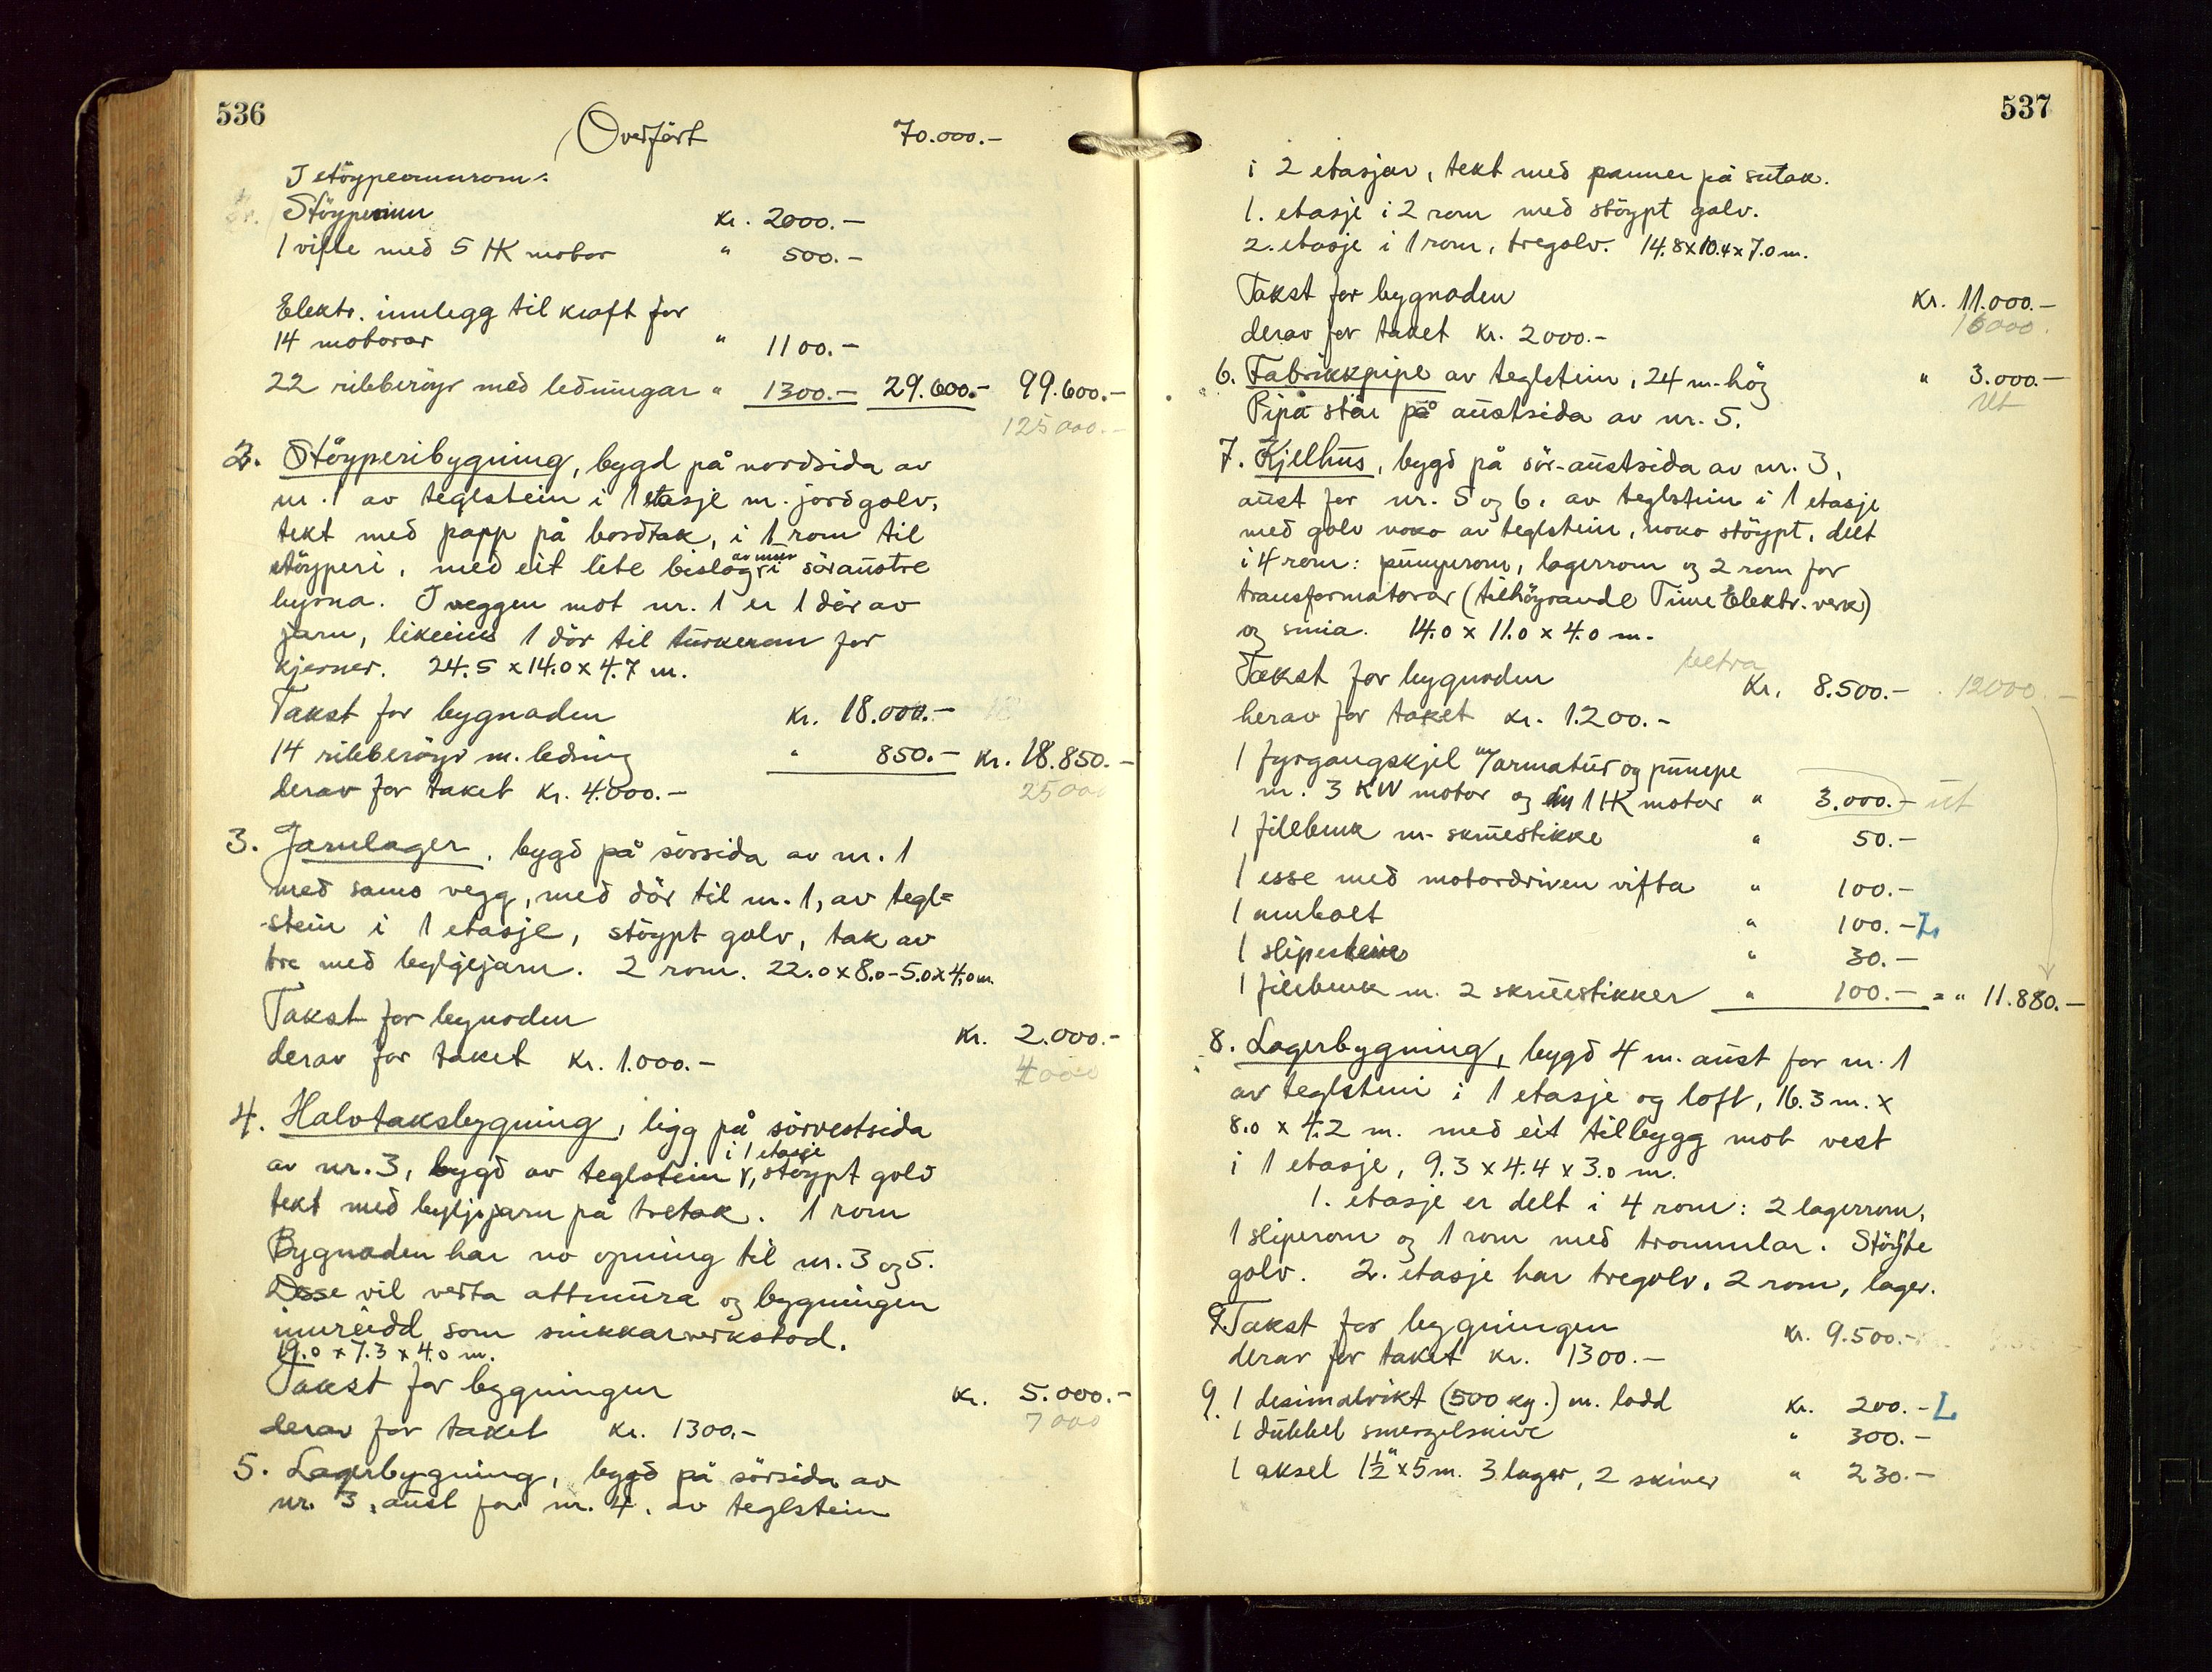 536
Overfört 70.000.-
I stöypeomnsrom:
Stöypeomn kr. 2000.-
1 vifte med 5 HK motor " 500.-
Elektr. innlegg til kraft for
14 motorar " 1100.-
22 ribberöyr med ledningar " 1300.- 29.600.- 99.600.-
125 000.-
2. Stöyperibygning, bygd på nordsida av
nr. 1 av teglstein i 1 etasje m. jordgolv,
tekt med papp på bordtak, i 1 rom til
stöyperi, med eit lite bislag av mur i söraustre
hyrna. I veggen mot nr. 1 er 1 dör av
jarn, likeeins 1 dör til turkerom for
kjerner. 24.5 x 14.0 x 4.7 m.
Takst for bygnaden kr. 18.000.- 18
14 ribberöyr m. ledning " 850.- kr. 18.850.-
derav for taket kr. 4.000.- 25 000
3. Jarnlager, bygd på sörsida av nr. 1
med samo vegg, med dör til nr. 1, av tegl=
stein i 1 etasje, stöypt golv, tak av
tre med bylgjejarn. 2 rom. 22.0 x 8.0-5.0 x 4.0 m.
Takst for bygnaden kr. 2.000.-
derav for taket kr. 1.000.- 4000
4. Halvtaksbygning, ligg på sörvestsida
av nr. 3, bygd av teglstein i 1 etasje, stöypt golv
tekt med bylgjejarn på tretak. 1 rom
Bygnaden har no opning til nr. 3 og 5.
Desse vil verta attmura og bygningen
innreidd som snikkarverkstad.
19.0 x 7.3 x 4.0 m.
Takst for bygningen kr. 5.000.-
derav for taket kr. 1300.- 7000
5. Lagerbygning, bygd på sörsida av
nr. 3, aust for nr. 4, av teglstein
537
i 2 etasjar, tekt med panner på sutak.
1. etasje i 2 rom med stöypt golv.
2. etasje i 1 rom, tregolv. 14.8 x 10.4 x 7.0 m.
Takst for bygnaden kr. 11.000.-
derav for taket kr. 2000.- 16000.
6. Fabrikkpipe av teglstein, 24 m. hög " 3.000.-
Pipa står på austsida av nr. 5. Ut
7. Kjelhus, bygd på sör-austsida av nr. 3,
aust for nr. 5 og 6, av teglstein i 1 etasje
med golv noko av teglstein, noko stöypt, delt
i 4 rom: pumperom, lagerrom og 2 rom for
transformatorar (tilhöyrande Time Elektr. verk)
og smia. 14.0 x 11.0 x 4.0 m.
Takst for bygnaden betra kr. 8.500.- 12000.-
herav for taket kr. 1.200.-
1 fyrgangskjel m/armatur og pumpe
m. 3 KW motor og 1 HK motor " 3.000.- ut
1 filebenk m. skruestikke " 50.-
1 esse med motordriven vifta " 100.-
1 ambolt " 100.- L
1 slipestein " 30.-
1 filebenk m. 2 skruestikker " 100.- = " 11.880.-
8. Lagerbygning, bygd 4 m. aust for nr. 1
av teglstein i 1 etasje og loft, 16.3 m. x
8.0 x 4.2 m. med eit tilbygg mot vest
i 1 etasje, 9.3 x 4.4 x 3.0 m.
1. etasje er delt i 4 rom: 2 lagerrom,
1 sliperom og 1 rom med tromlar. Stöypte
golv. 2. etasje har tregolv, 2 rom, lager.
9. Takst for bygningen kr. 9.500.-
derav for taket kr. 1300.-
9. 1 desimalvikt (500 kg.) m. lodd kr. 200.- L
1 dubbel smergelskive " 300.-
1 aksel 1½" x 5 m. 3 lager, 2 skiver " 230.-